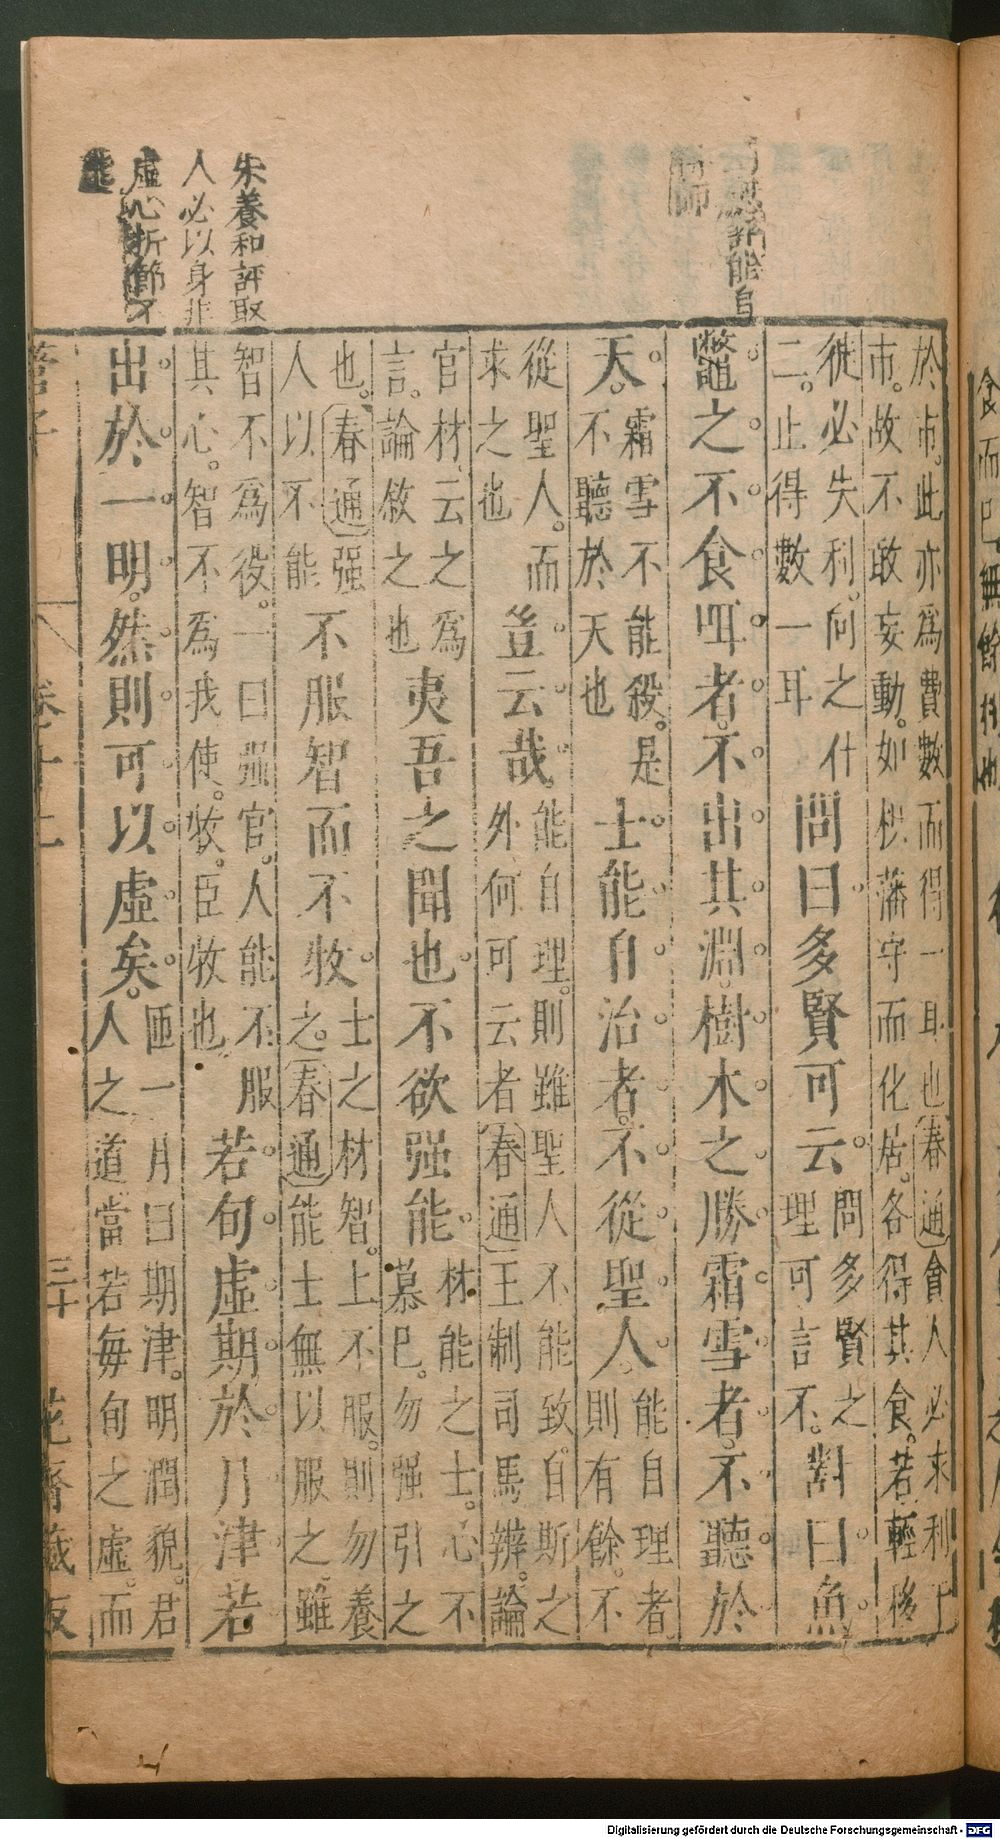 於市。此亦爲費數而得一耳也春通貪人必求利于
市。故不敢妄動。如椒藩守而化居。各得其食。若輕移
徙必失利。何之什
二。止得數一耳
問曰多賢可云
問多賢之
理可言不。
對曰魚
鼈之不食咡者。不出其淵。樹木之勝霜雪者。不聽於
天。
霜雪不能殺。是
不聽於天也
士能自治者。不從聖人。
能自理者。
則有餘。不
從聖人。而
求之也
豈云哉。
能自理。則雖聖人不能致。自斯之
外。何可云者春通王制司馬辨論
官材。云之爲
言。論敘之也
夷吾之聞也不欲强能。
材能之士。心不
慕已。勿强引之
也。春通强
人以不能
不服智而不牧。
士之材智。上不服。則勿養
之。春通能士無以服之雖
智不爲役。一曰强官。人能不服
其心。智不爲我使。牧。臣牧也
若旬虛期於月津若
出於一明。然則可以虛矣。
匝一月曰期津。明潤貌。君
人之道當若每旬之虛。而
能自
朱養和評取
人必以身非
虛心折節不
能
管子
卷十二
三十
花齋藏板
Digitalisierung gefördert durch die Deutsche Forschungsgemeinschaft - DFG